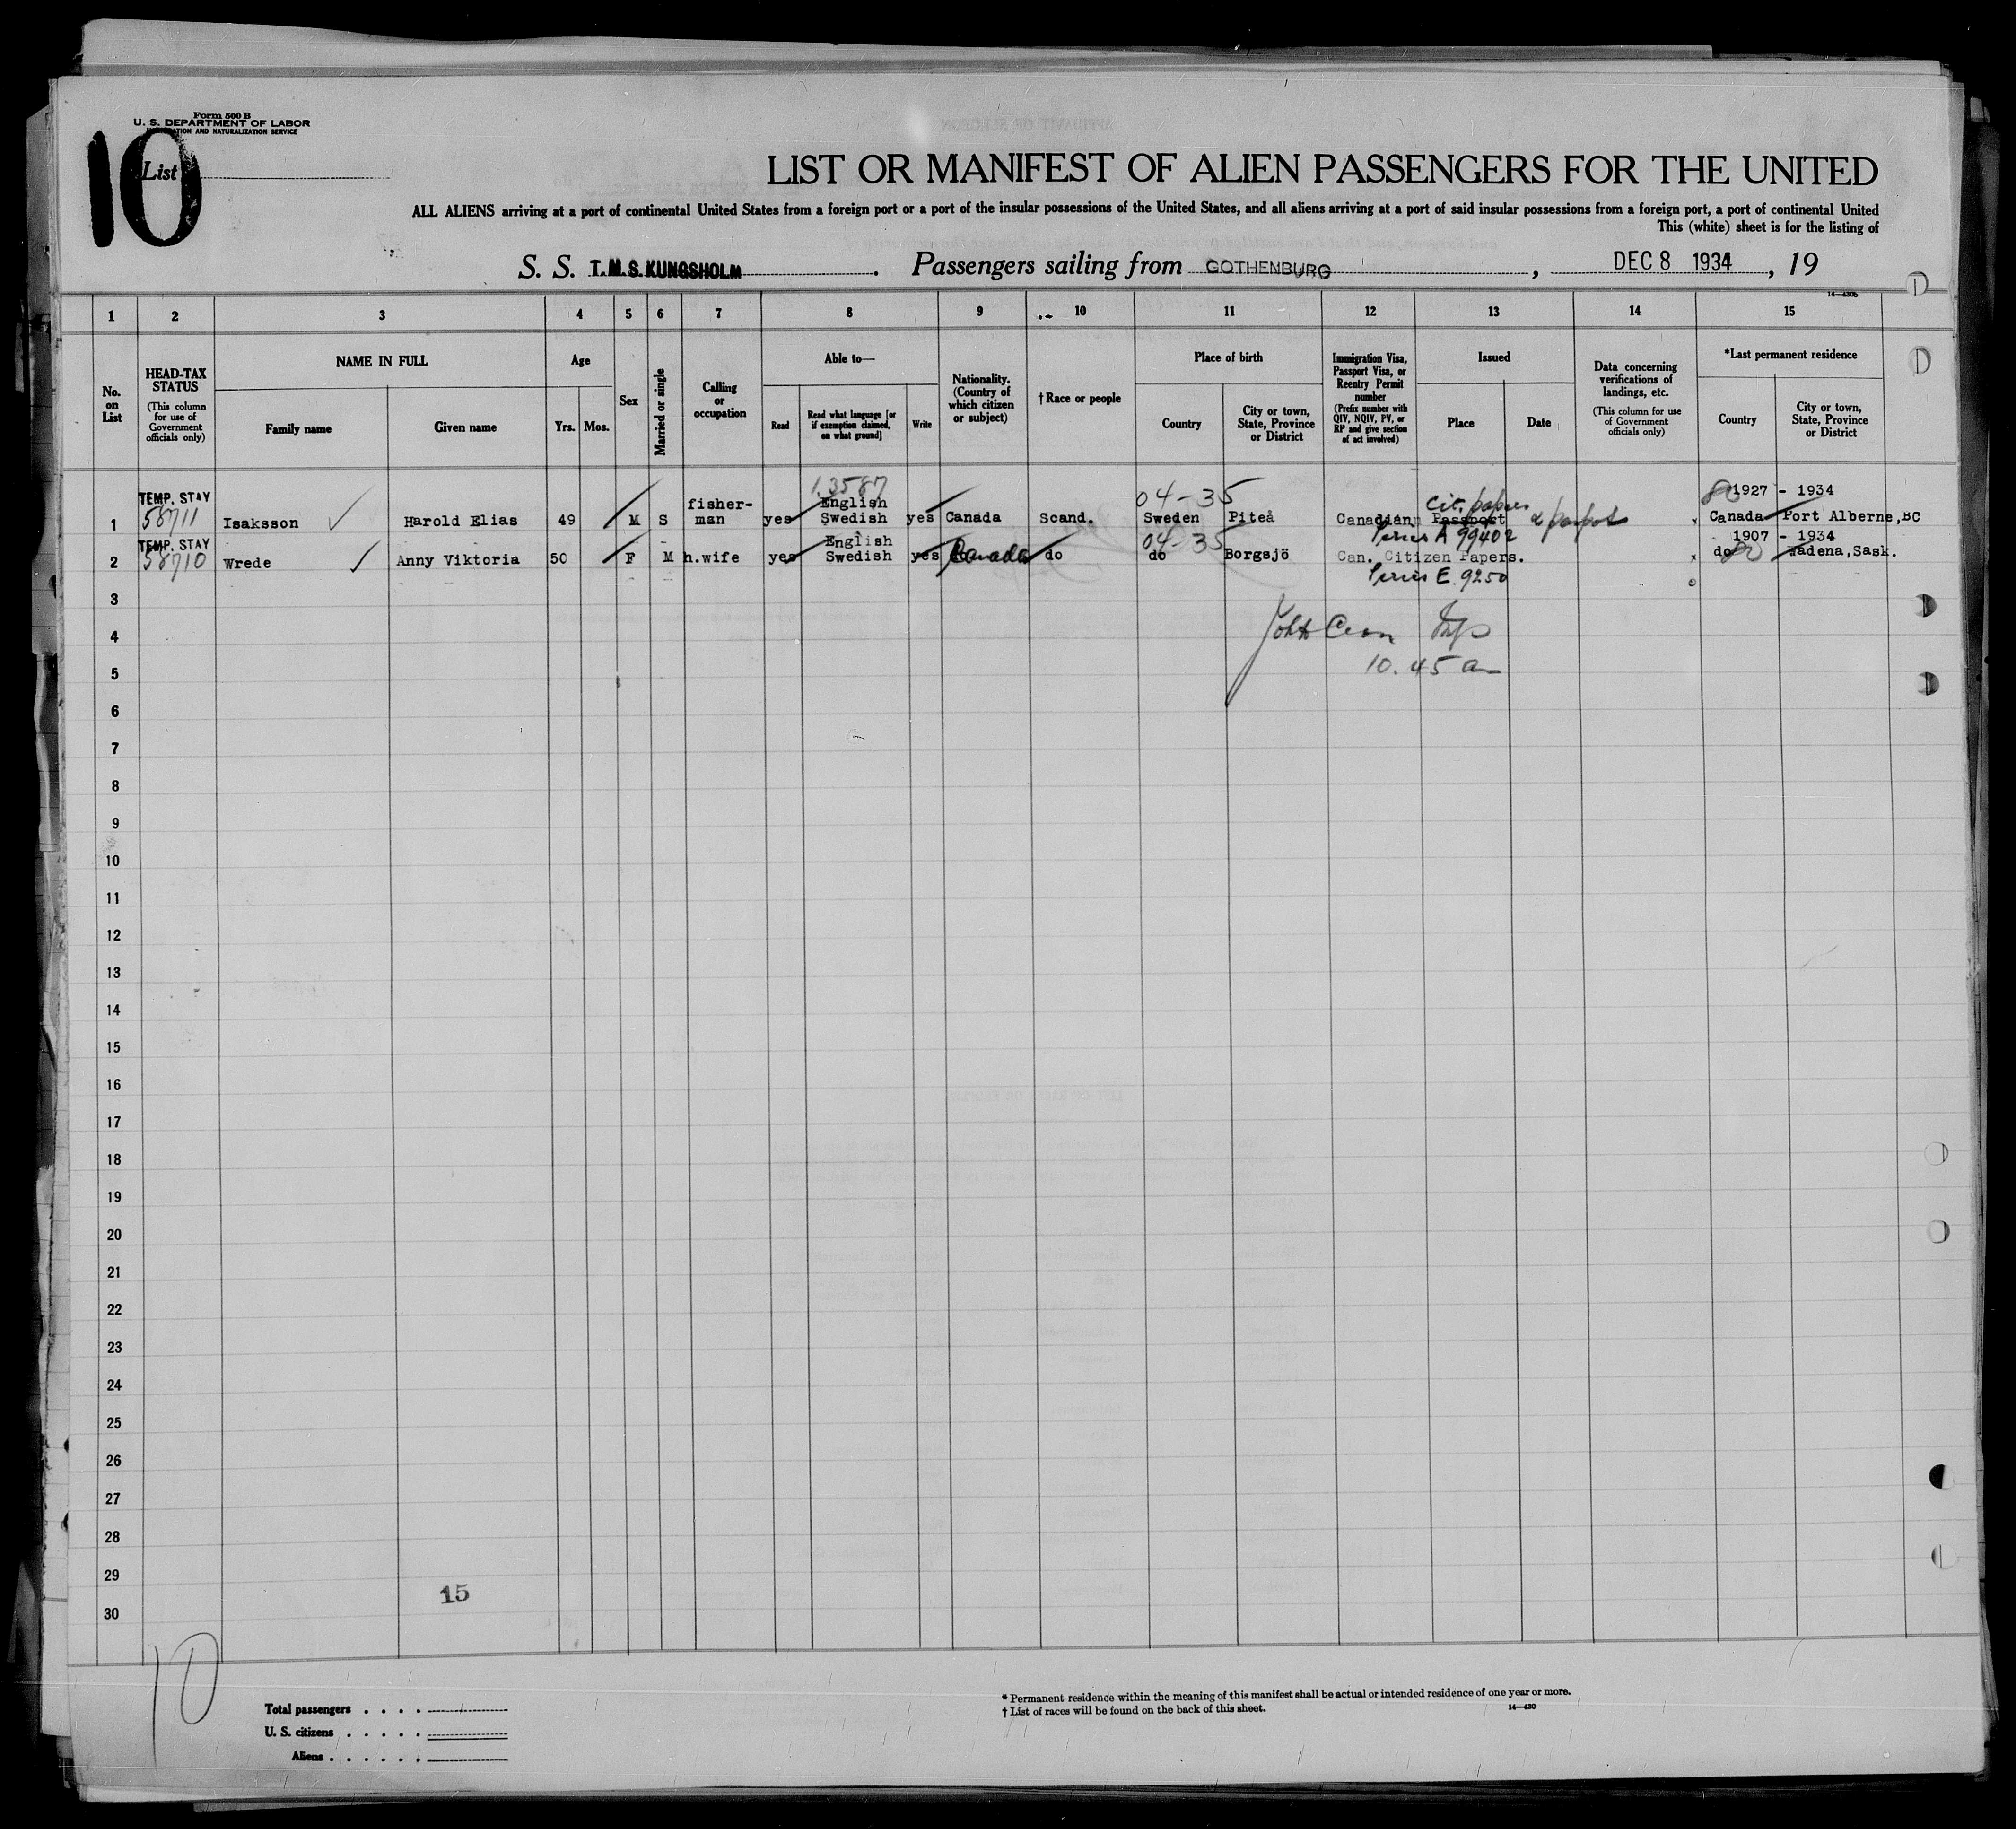 Form 500 B
U. S. DEPARTMENT OF LABOR
IMMIGRATION AND NATURALIZATION SERVICE
10
List
LIST OR MANIFEST OF ALIEN PASSENGERS FOR THE UNITED
ALL ALIENS arriving at a port of continental United States from a foreign port or a port of the insular possessions of the United States, and all aliens arriving at a port of said insular possessions from a foreign port, a port of continental United
This (white) sheet is for the listing of
S. S. T.M.S.KUNGSHOLM. Passengers sailing from GOTHENBURG, DEC 8 1934, 19
14—430b
1 2 3 4 5 6 7 8 9 10 11 12 13 14 15
No. on List
HEAD-TAX STATUS
(This column for use of Government officials only)
NAME IN FULL
Family name
Given name
Age
Yrs. Mos.
Sex
Married or single
Calling or occupation
Able to—
Read
Read what language [or if exemption claimed, on what ground]
Write
Nationality. (Country of which citizen or subject)
†Race or people
Place of birth
Country
City or town, State, Province or District
Immigration Visa, Passport Visa, or Reentry Permit number
(Prefix number with QIV, NQIV, PV, or RP and give section of act involved)
Issued
Place
Date
Data concerning verifications of landings, etc.
(This column for use of Government officials only)
*Last permanent residence
Country
City or town, State, Province or District
1.3587
TEMP. STAY fisher- English 04-35 Cit. papers 80 1927 - 1934
1 58711 Isaksson Harold Elias 49 M S man yes Swedish yes Canada Scand. Sweden Piteå Canadian Passport Canada Port Alberne,BC
Series A 99402
TEMP. STAY English 04-35 1907 - 1934
2 58710 Wrede Anny Viktoria 50 F M h.wife yes Swedish yes Canada do do Borgsjö Can. Citizen Papers. do 80 Wadena,Sask.
Series E 9250
3
4
10.45 a
5
6
7
8
9
10
11
12
13
14
15
16
17
18
19
20
21
22
23
24
25
26
27
28
29
15
30
10
Total passengers
U. S. citizens
Aliens
* Permanent residence within the meaning of this manifest shall be actual or intended residence of one year or more.
† List of races will be found on the back of this sheet.
14—430